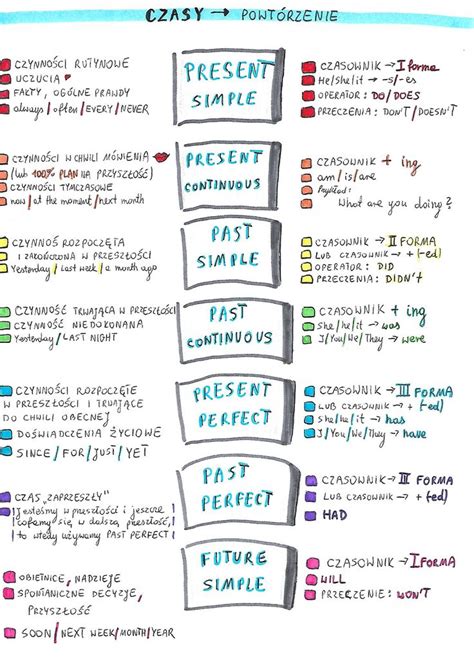 CZASY → POWTÓRZENIE
CZYNNOŚCI RUTYNOWE
UCZUCIA
FAKTY, OGÓLNE PRAWDY
always/often/EVERY/NEVER
PRESENT
SIMPLE
CZASOWNIK → I forma
He/She/it → -s/-es
OPERATOR: DO/DOES
PRZECZENIA: DON'T/DOESN'T
CZYNNOŚCI W CHWILI MÓWIENIA
(lub 100% PLAN NA PRZYSZŁOŚĆ)
CZYNNOŚCI TYMCZASOWE
now/at the moment/next month
PRESENT
CONTINUOUS
CZASOWNIK + ing
am/is/are
Przykład:
What are you doing?
CZYNNOŚ ROZPOCZĘTA
I ZAKOŃCZONA W PRZESZŁOŚCI
Yesterday/Last week/a month ago
PAST
SIMPLE
CZASOWNIK → II FORMA
LUB CZASOWNIK → + (-ed)
OPERATOR: DID
PRZECZENIA: DIDN'T
CZYNNOŚĆ TRWAJĄCA W PRZESZŁOŚCI
CZYNNOŚĆ NIEDOKONANA
Yesterday/LAST NIGHT
PAST
CONTINUOUS
CZASOWNIK + ing
She/he/it → was
I/You/We/They → were
CZYNNOŚCI ROZPOCZĘTE
W PRZESZŁOŚCI I TRWAJĄCE
DO CHWILI OBECNEJ
DOŚWIADCZENIA ŻYCIOWE
SINCE/FOR/JUST/YET
PRESENT
PERFECT
CZASOWNIK → III FORMA
LUB CZASOWNIK → + (-ed)
She/he/it → has
I/You/We/They → have
CZAS „ZAPRZESZŁY"
Jesteśmy w przeszłości i jeszcze
cofamy się w dalszą przeszłość,
to wtedy używamy PAST PERFECT
PAST
PERFECT
CZASOWNIK → III FORMA
LUB CZASOWNIK → + (-ed)
HAD
OBIETNICE, NADZIEJE
SPONTANICZNE DECYZJE,
PRZYSZŁOŚĆ
SOON/NEXT WEEK/MONTH/YEAR
FUTURE
SIMPLE
CZASOWNIK → I FORMA
WILL
PRZECZENIE: WON'T